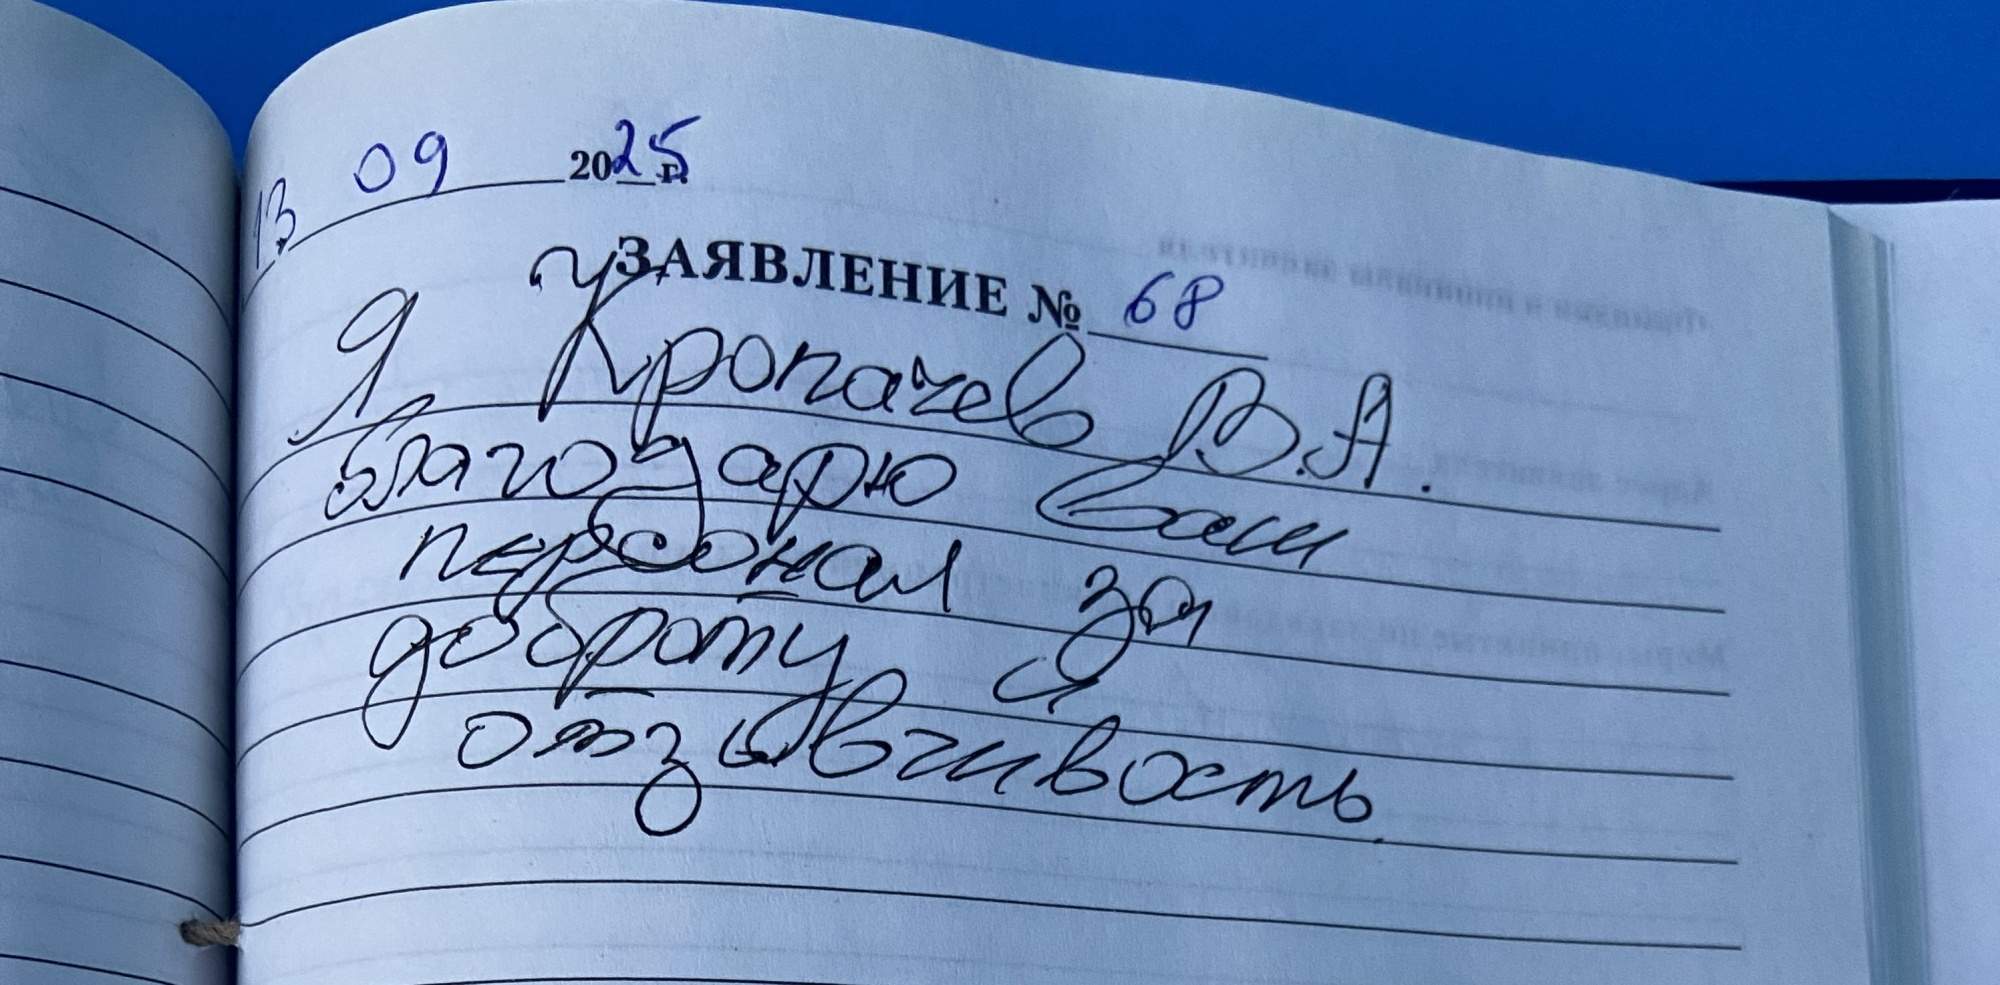 13 09 2025 г.
ЗАЯВЛЕНИЕ № 68
Я Кропачев В.А.
благодарю Ваш
персонал за
доброту и
отзывчивость.